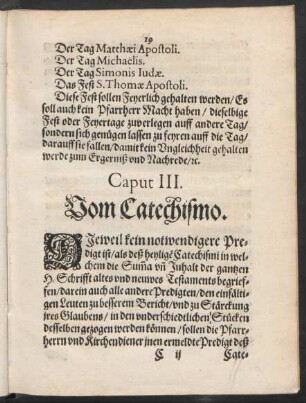 19
Der Tag Matthæi Apostoli.
Der Tag Michaelis.
Der Tag Simonis Iudæ.
Das Fest S. Thomæ Apostoli.
Diese Fest sollen Feyerlich gehalten werden / Es
soll auch kein Pfarrherr Macht haben / dieselbige
Fest oder Feyertage zuverlegen auff andere Tag /
sondern sich genügen lassen zu feyren auff die Tag
darauff sie fallen / damit kein Ungleichheit gehalten
werde zum Ergerniß und Nachrede / ꝛc.
Caput III.
Vom Catechismo.
DJeweil kein notwendigere Pre-
digt ist / als deß heyligē Catechismi in wel-
chem die Sum̄a vn̄ Jnhalt der gantzen
H. Schrifft altes vnd neuwes Testaments begrief-
fen / darein auch alle andere Predigten / den einfälti-
gen Leuten zu besserem Bericht / vnd zu Stärckung
jres Glaubens / in den vnderschiedtlichen Stücken
desselben gezogen werden können / sollen die Pfarr-
herrn vnd Kirchendiener jnen ermeldte Predigt deß
C ij
Cate-